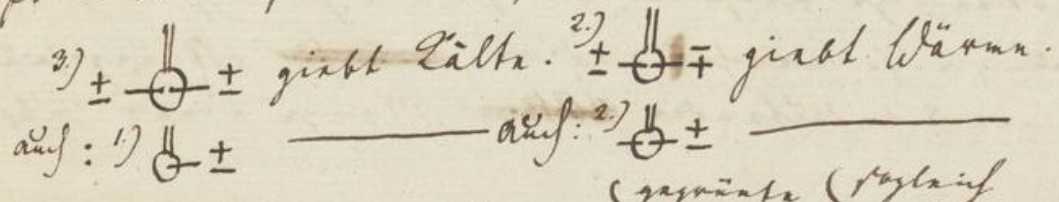 3.) ± ± giebt Kälte. 2.) ± ∓ giebt Wärme.
auch: 1.) ± ——— auch: 2.) ± ———
(geprüfte (sogleich